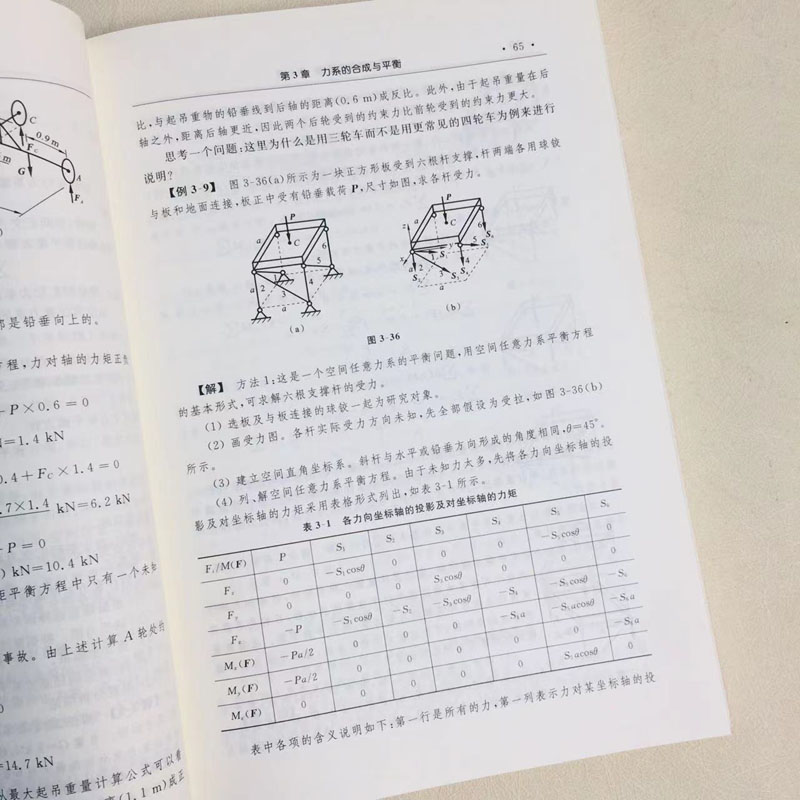 都是铅垂向上的。
+P×0.6=0
N=1.4 kN
0.4+F_C×1.4=0
kN=6.2 kN
-P=0
kN=10.4 kN
事故。由上述计算 A 轮处
=14.7 kN
第3章 力系的合成与平衡
• 65 •
比,与起吊重物的铅垂线到后轴的距离(0.6 m)成反比。此外,由于起吊重量在后
轴之外,距离后轴更近,因此两个后轮受到的约束力比前轮受到的约束力更大。
思考一个问题:这里为什么是用三轮车而不是用更常见的四轮车为例来进行
说明?
【例 3-9】 图 3-36(a)所示为一块正方形板受到六根杆支撑,杆两端各用球铰
与板和地面连接,板正中受有铅垂载荷 P,尺寸如图,求各杆受力。
(a)
(b)
图 3-36
【解】 方法 1:这是一个空间任意力系的平衡问题,用空间任意力系平衡方程
的基本形式,可求解六根支撑杆的受力。
(1) 选板及与板连接的球铰一起为研究对象。
(2) 画受力图。各杆实际受力方向未知,先全部假设为受拉,如图 3-36(b)
所示。
(3) 建立空间直角坐标系。斜杆与水平或铅垂方向形成的角度相同,θ=45°。
(4) 列、解空间任意力系平衡方程。由于未知力太多,先将各力向坐标轴的投
影及对坐标轴的力矩采用表格形式列出,如表 3-1 所示。
表 3-1 各力向坐标轴的投影及对坐标轴的力矩
F_i/M(F) P S₁ S₂ S₃ S₄ S₅ S₆
F_x 0 -S₁cosθ 0 0 0 -S₅cosθ 0
F_y 0 0 0 S₃cosθ 0 0 0
F_z -P -S₁cosθ -S₂ -S₃cosθ -S₄ -S₅cosθ -S₆
M_x(F) -Pa/2 0 0 0 -S₄a -S₅acosθ -S₆a
M_y(F) -Pa/2 0 0 0 0 0 -S₆a
M_z(F) 0 0 0 0 0 S₅acosθ 0
表中各项的含义说明如下:第一行是所有的力,第一列表示力对某坐标轴的投